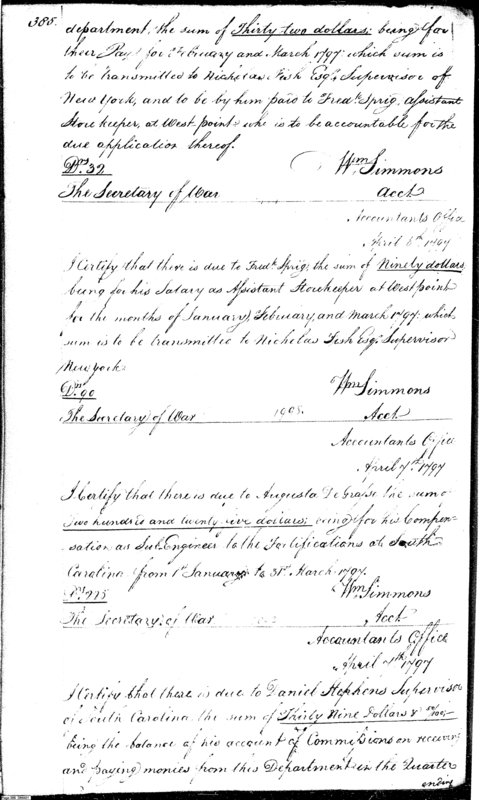 388.
department, the sum of Thirty two dollars; being for
their Pay for February and March 1797: which sum is
to be transmitted to Nicholas Fish Esqr. Supervisor of
New York, and to be by him paid to Fredk. Sprig, assistant
Storekeeper, at West point who is to be accountable for the
due application thereof.
Drs. 32 Wm Simmons
The Secretary of War Acct
Accountants Office
April 6th. 1797
I Certify that there is due to Fredk. Sprig; the sum of Ninety dollars,
being for his Salary as Assistant Storekeeper at West point
for the months of January, February, and March 1797. which
sum is to be transmitted to Nicholas Fish Esqr. Supervisor
New York.
Drs. 90 Wm Simmons
The Secretary of War Acct.
Accountants Office
April 7th. 1797
I Certify that there is due to Augusta De Grasse the sum o
Two hundred and twenty five dollars; being for his Compen-
sation as Sub. Engineer to the Fortifications at South
Carolina from 1st January to 31st. March 1797.
Wm Simmons
The Secretary of War Acct
Accountants Office
April 7th 1797
I Certify that there is due to Daniel Stephens Supervisor
of South Carolina the sum of Thirty Nine Dollars &
being the balance of his account of Commissions on receiving
and paying monies from this Department in the Quarter
ending